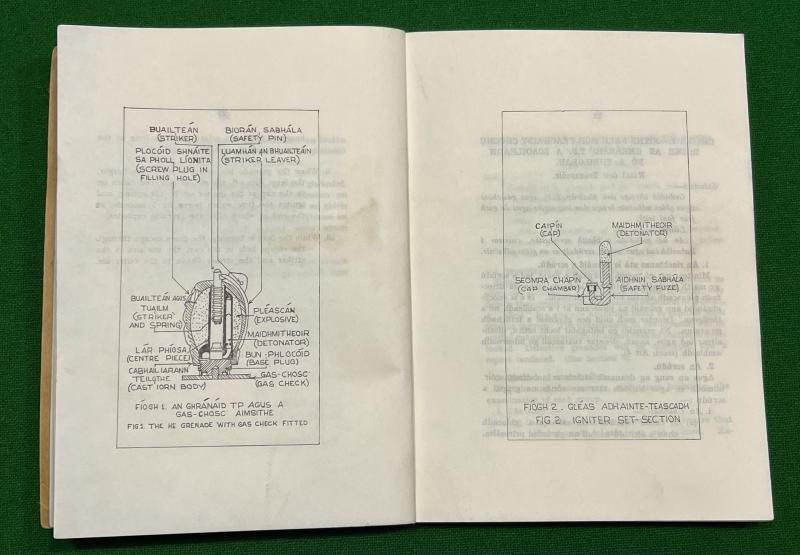 BUAILTEÁN
(STRIKER)
BIORÁN SABHÁLA
(SAFETY PIN)
PLOCÓID SHNÁITE
SA PHOLL LÍONTA
(SCREW PLUG IN
FILLING HOLE)
LUAMHÁN AN BHUAILTEÁIN
(STRIKER LEAVER)
BUAILTEÁN AGUS
TUAILM
(STRIKER
AND SPRING)
PLÉASCÁN
(EXPLOSIVE)
MAIDHMITHEOIR
(DETONATOR)
LÁR PHÍOSA
(CENTRE PIECE)
BUN-PHLOCÓID
(BASE PLUG)
CABHAIL IARANN
TEILGTHE
(CAST IORN BODY)
GAS-CHOSC
(GAS CHECK)
FÍOGH 1. AN GHRÁNÁID TP AGUS A
GAS-CHOSC AIMSITHE
FIG.1. THE HE GRENADE WITH GAS CHECK FITTED
CAIPÍN
(CAP)
MAIDHMITHEOIR
(DETONATOR)
SEOMRA CHAPIN
(CAP CHAMBER)
AIDHNÍN SÁBHÁLA
(SAFETY FUZE)
FÍOGH 2. GLÉAS ADHAINTE-TEASCADH
FIG. 2. IGNITER SET-SECTION